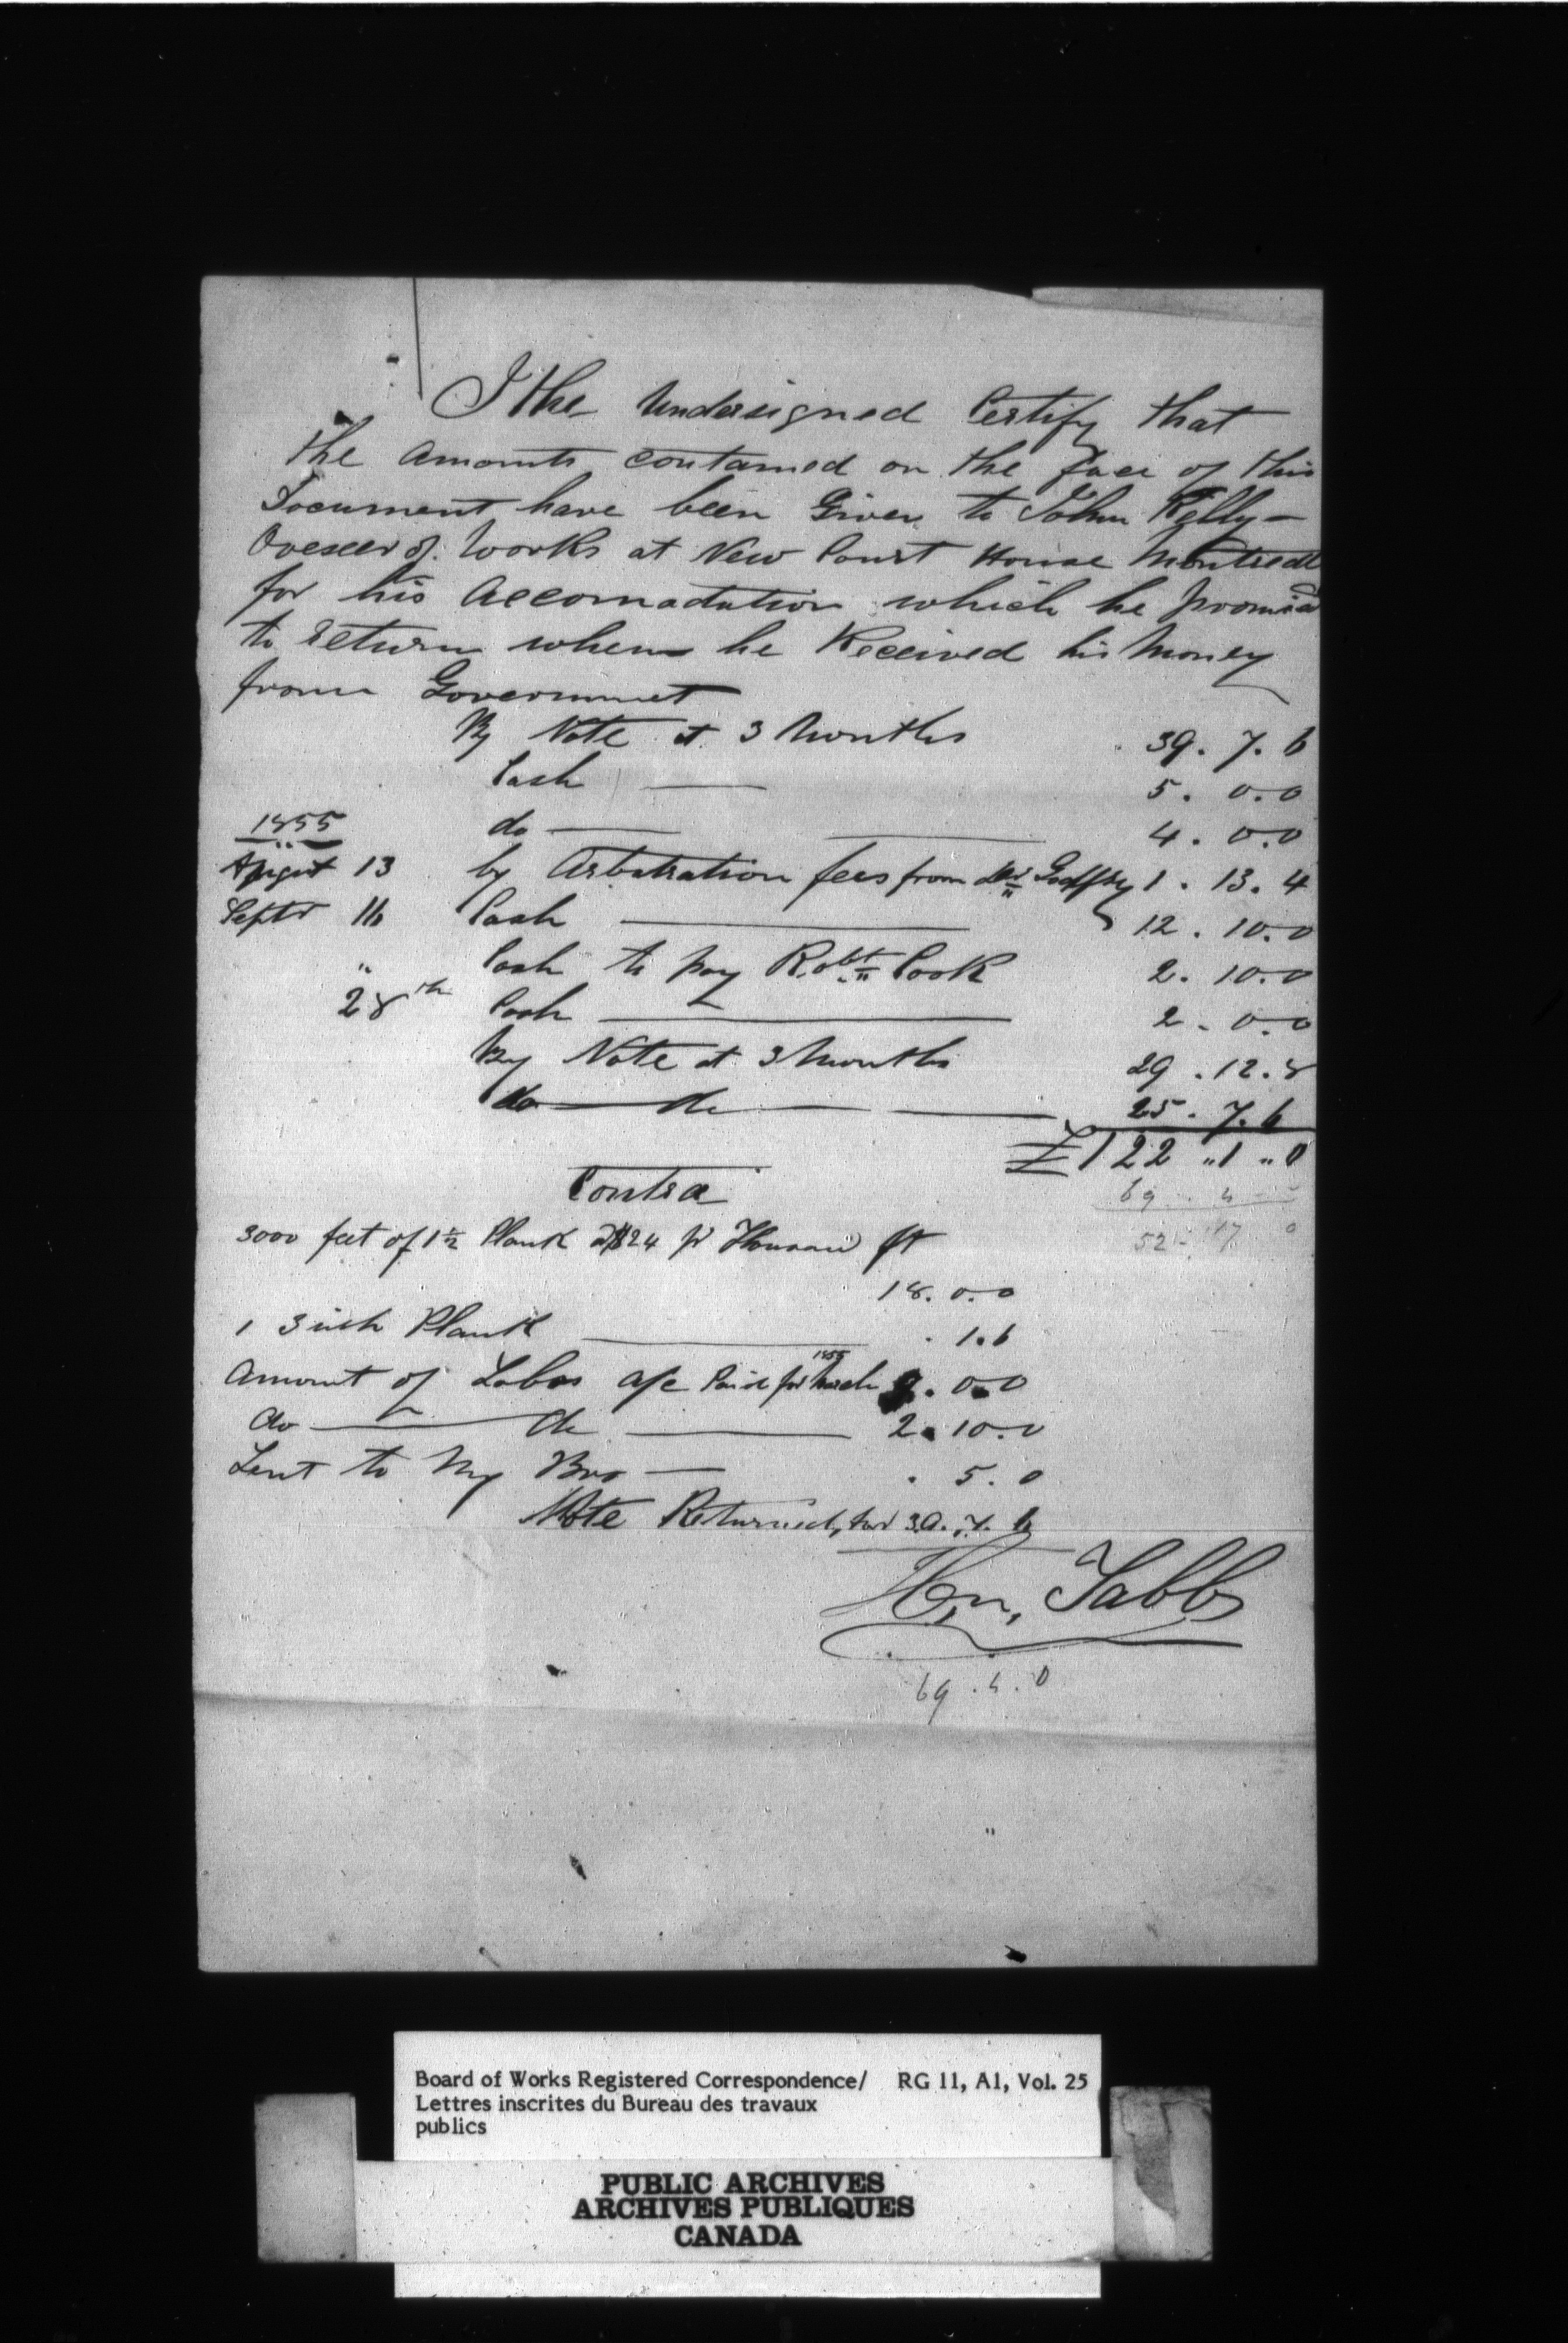 I the Undersigned Certify that
the Amounts contained on the face of this
Document have been Given to John Kelly —
Overseer of Works at New Court House Montreal
for his Accomadation which he promised
to return when he Received his Money
from Government
By Note at 3 Months 39. 7. 6
Cash — 5. 0. 0
1855 do — 4. 0. 0
August 13 by Arbitration fees from Mr Godfrey 1. 13. 4
Septr 16 Cash — 12. 10. 0
" Cash to pay Robt Cook 2. 10. 0
28th Cash — 2. 0. 0
By Note at 3 Months 29. 12. 8
do — do — 25. 7. 6
£122 " 1 " 0
Contra 69. 4 —
3000 feet of 1 1/2 Plank at $24 pr Thousand ft 52 - 17 0
18. 0. 0
1 3 inch Plank — . 1. 6
Amount of Labor a/c Paid for March 1855 9. 0. 0
do — do — 2. 10. 0
Lent to My Bro — . 5. 0
Note Returned, for 39. 7. 6
Hen, Tabb
69. 4. 0
Board of Works Registered Correspondence/ RG 11, A1, Vol. 25
Lettres inscrites du Bureau des travaux
publics
PUBLIC ARCHIVES
ARCHIVES PUBLIQUES
CANADA